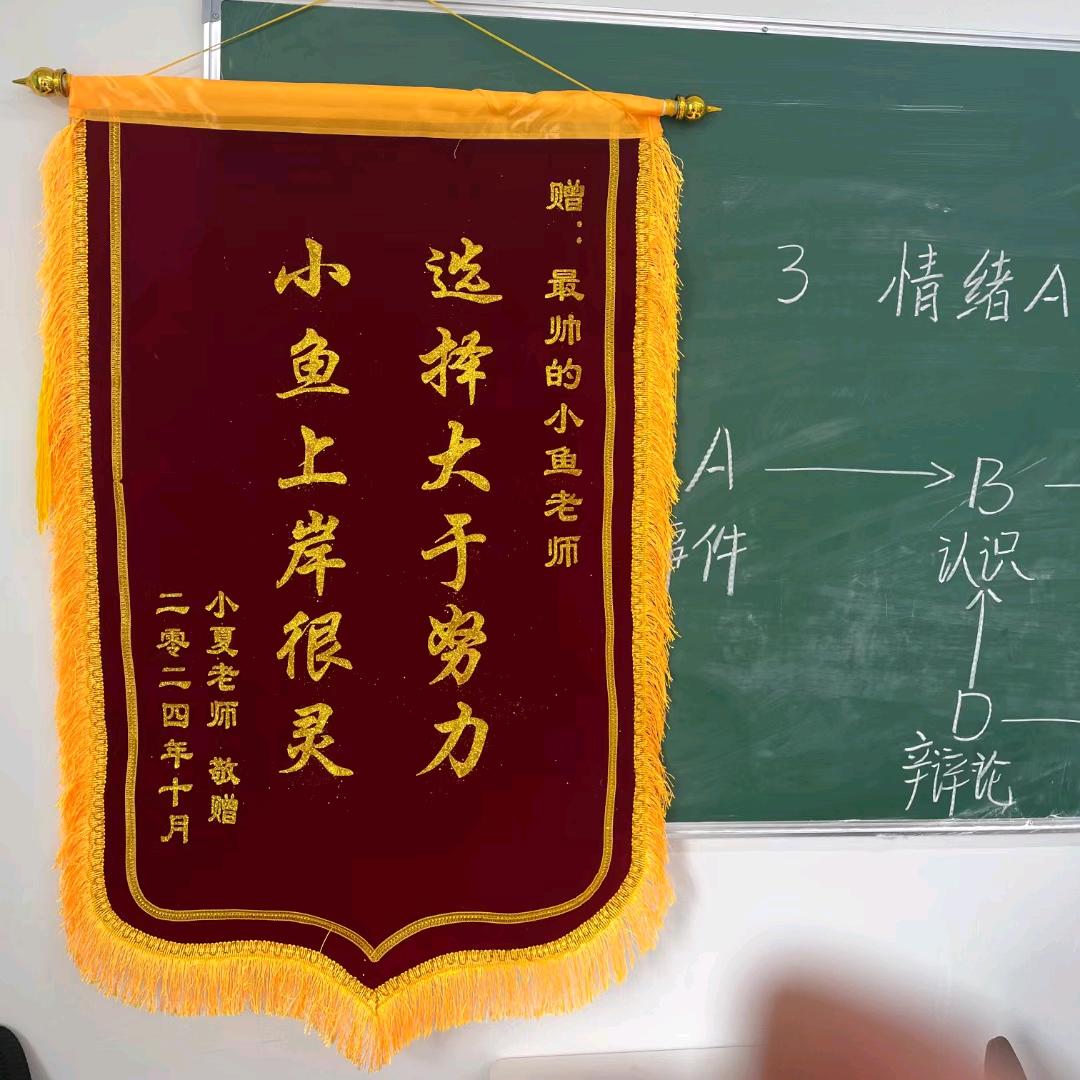 赠：最帅的小鱼老师
选择大于努力
小鱼上岸很灵
小夏老师 敬赠
二零二四年十月
3 情绪A
A → B
事件
认识
D
辩论